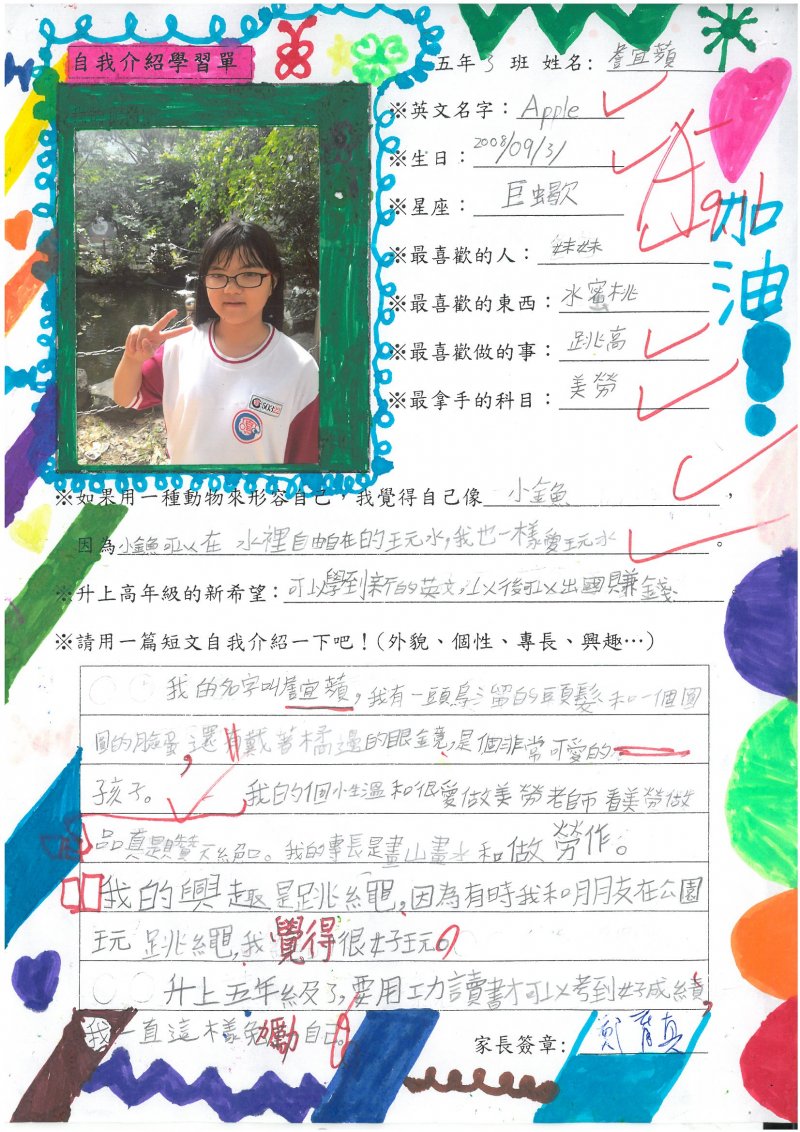 自我介紹學習單
五年 3 班 姓名: 詹宜蘋
※英文名字: Apple
※生日: 2008/09/31
※星座: 巨蠍
※最喜歡的人: 妹妹
※最喜歡的東西: 水蜜桃
※最喜歡做的事: 跳高
※最拿手的科目: 美勞
A
加油
503
※如果用一種動物來形容自己,我覺得自己像 小金魚,
因為小金魚可以在 水裡自由自在的玩水,我也一樣愛玩水。
※升上高年級的新希望: 可以學到新的英文,以後可以出國賺錢
※請用一篇短文自我介紹一下吧!(外貌、個性、專長、興趣…)
我的名字叫詹宜蘋,我有一頭烏溜的頭髮和一個圓
圓的臉蛋,還有戴著橘邊的眼鏡,是個非常可愛的
孩子。 我的個小生溫和很愛做美勞老師看美勞做
品真是讚天絕口。我的專長是畫山畫水和做勞作。
我的興趣是跳繩,因為有時我和朋友在公園
玩 跳繩,我覺得很好玩。
升上五年級了,要用工力讀書才可以考到好成績,
我一直這樣勉勵自己。
家長簽章: